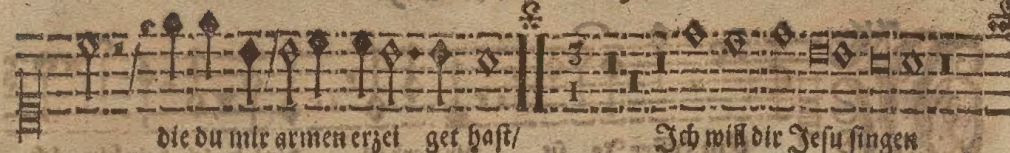 3
1
die du mir armen erzei get hast/ Ich will dir Jesu singen